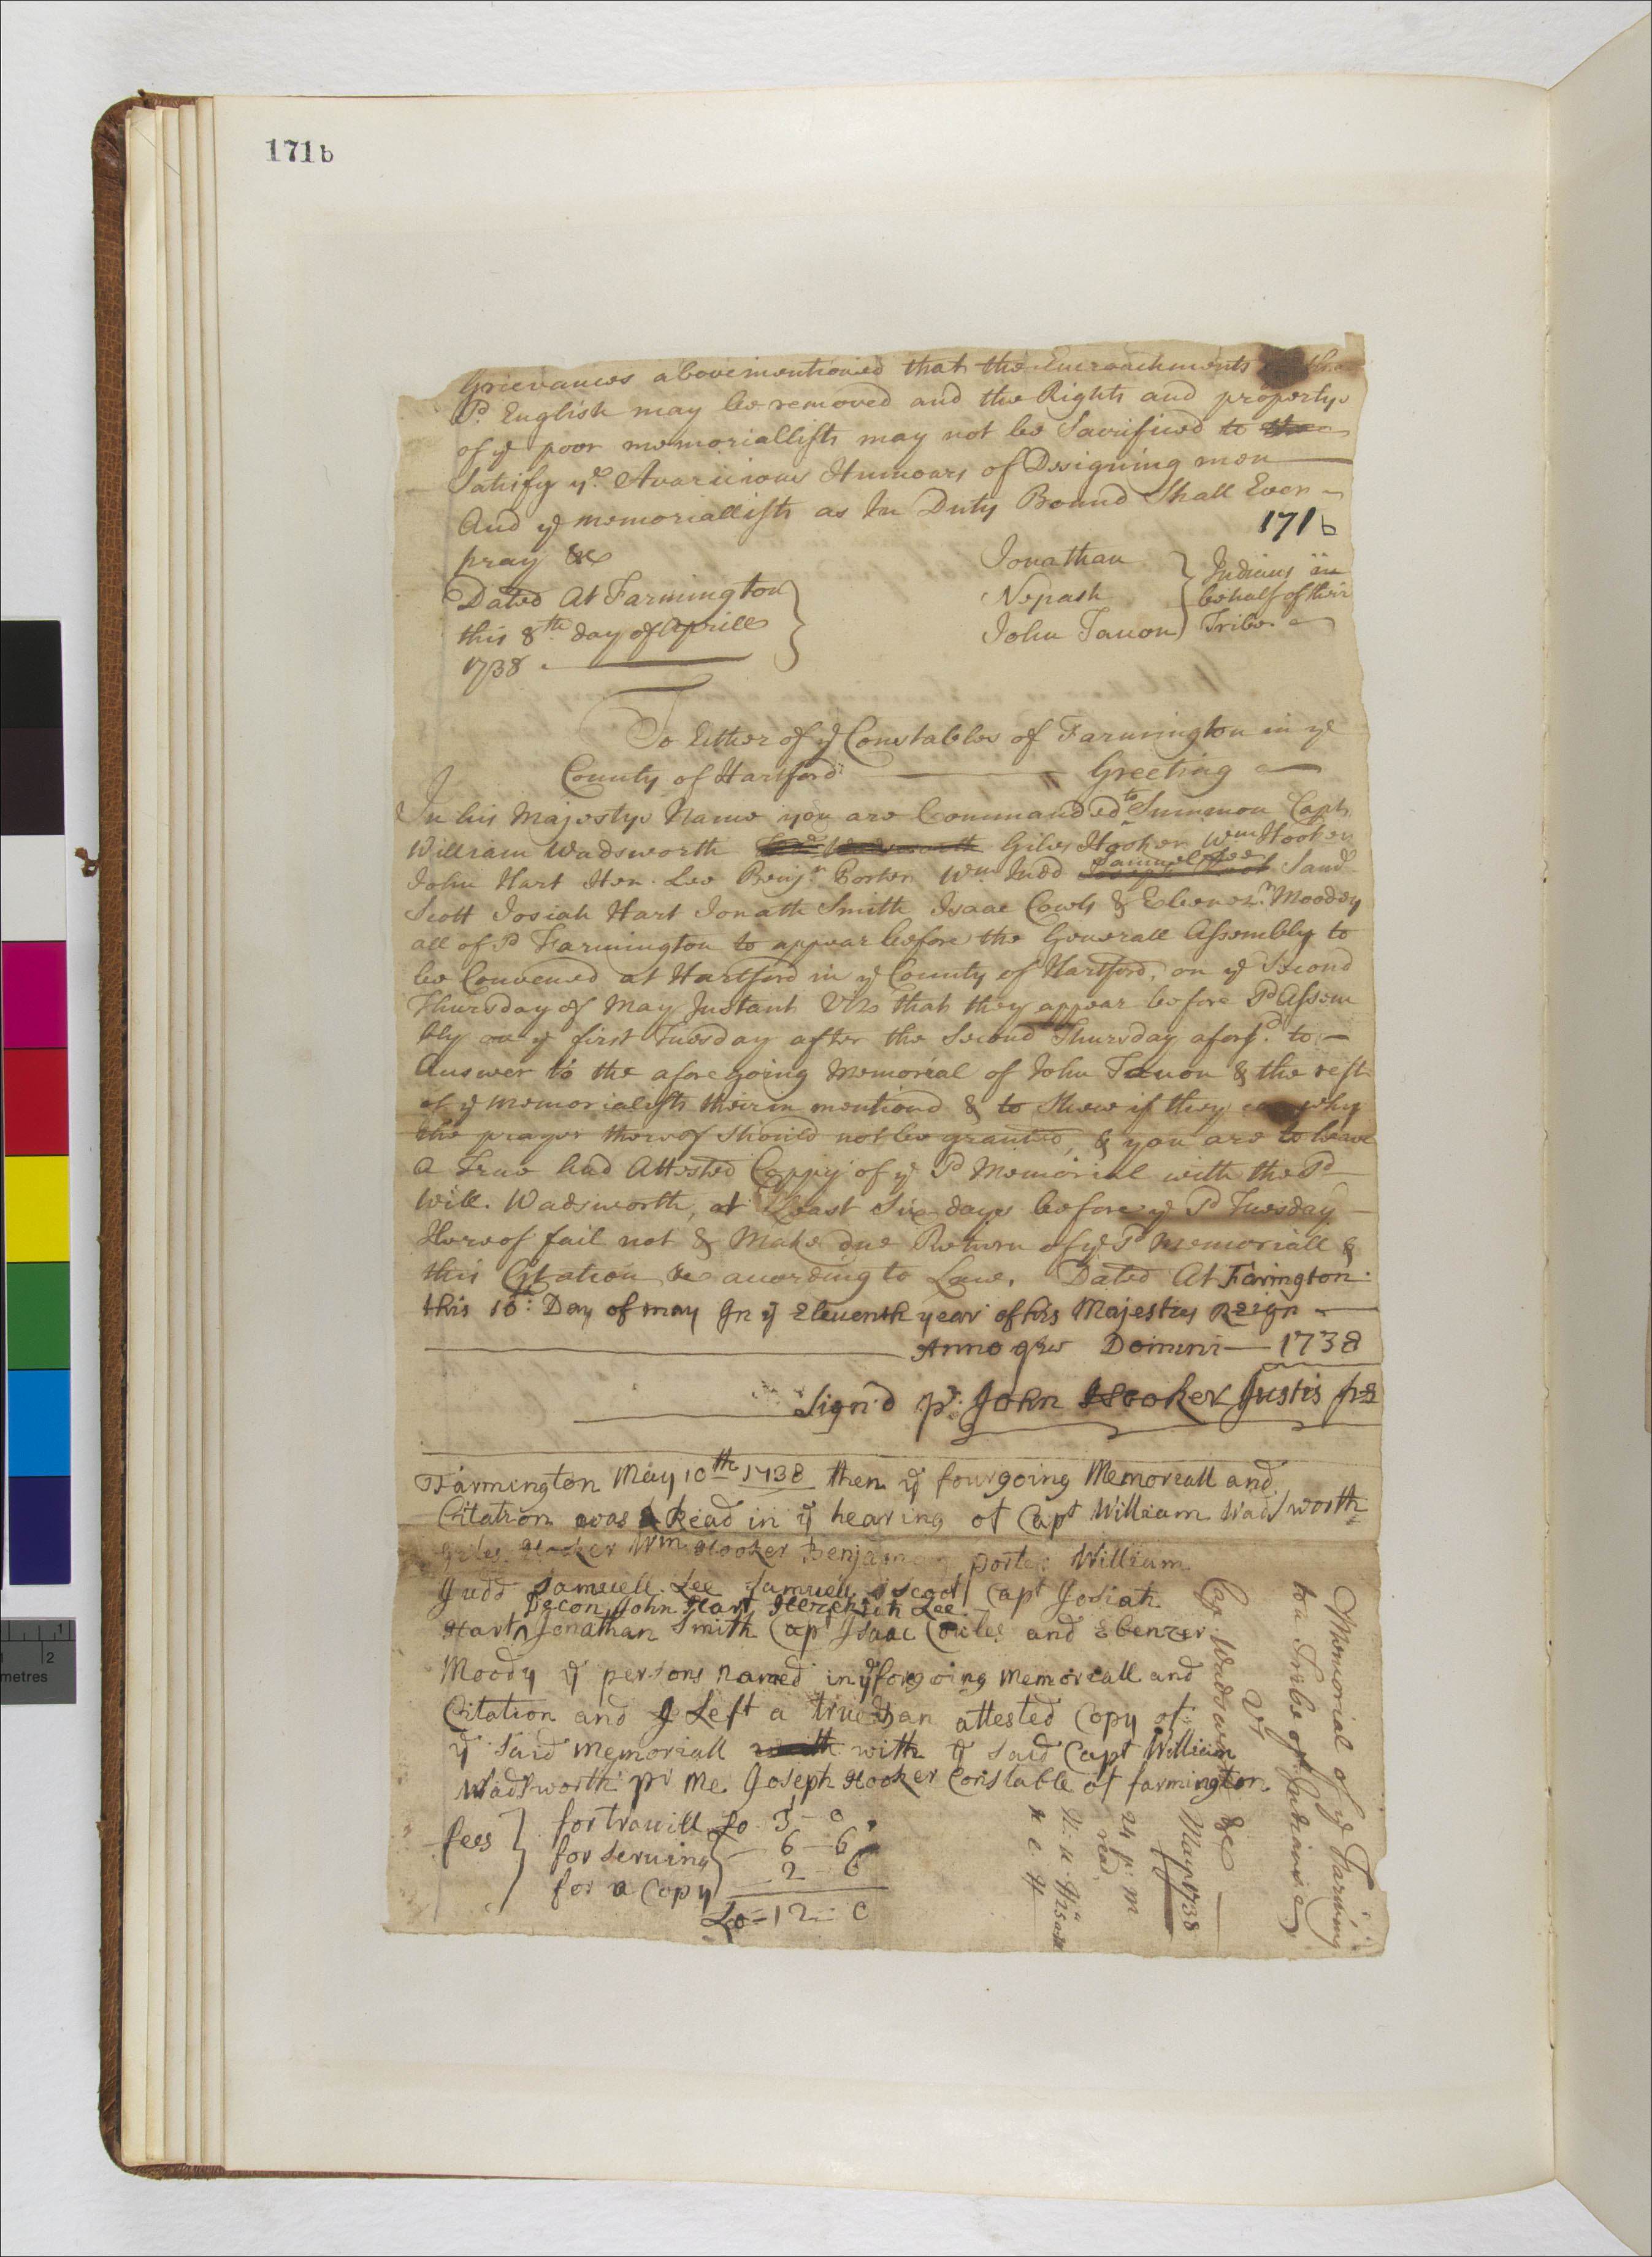 171b
Grievances abovementioned that the Encroachments the
sd. English may be removed and the Rights and propertys
of ye poor memoriallists may not be Sacrificed to the
Satisfy ye. Avaricious Humours of Designing men
And ye memoriallists as In Duty Bound Shall Ever
171b
pray &c
Dated At Farmington
this 8th. day of Aprill
1738.
Jonathan
Nepash
John Tauon
Indians in
behalf of their
Tribe.
To Either of ye Constables of Farmington in ye
County of Hartford Greeting
In his Majestys Name you are Commanded to Summon Capt.
William Wadsworth Giles Hooker Wm Hooker
John Hart Hez. Lee Benjn. Porter Wm. Judd Samuel Lee Samll
Scott Josiah Hart Jonath Smith Isaac Cowls & Ebenezr. Moodey
all of sd Farmington to appear before the Generall Assembly to
be Convened at Hartford in ye County of Hartford, on ye Second
Thursday of May Instant Viz that they appear before sd Assem
bly on ye first Tuesday after the Second Thursday aforsd. to
Answer to the aforegoing Memorial of John Tauon & the rest
of ye memorialists therin mentiond & to Shew if they why
the prayer thereof should not be granted, & you are to leave
a True And Attested Coppy of ye sd Memorial with the sd
Will. Wadsworth, at Least Six days before ye sd Tuesday
Hereof fail not & Make due Return of ye sd Memoriall &
this Citation &c according to Law. Dated At Farington
this 10: Day of may In ye Eleventh year of his Majesties Reign
Anno qe Domini 1738
Sign'd pr. John Hooker Justis pes
Farmington May 10th 1738 then ye fourgoing Memoreall and
Citation was Read in ye hearing of Capt William Wadsworth
Giles Hooker Wm Hooker Benjamen porter William
Judd Samuell Lee Samuell Scoot Capt Josiah
Decon John Hart Hezekiah Lee
Hart Jonathan Smith Capt Isaac Coules and Ebenzer
Moody ye persons named in ye forgoing memoreall and
Citation and I Left a true an attested Copy of
ye said memoreall with with ye said Capt William
Wadsworth pr me Joseph Hooker Constable of farmington
fees
for travill Lo 3 - 0
for serving - 6 - 6
for a Copy - 2 - 6
Lo - 12 - 0
Memorial of ye Farming
ton Tribe of Indians
Vs
Cap. Wadsworth &c
May 1738
24 p: m
read.